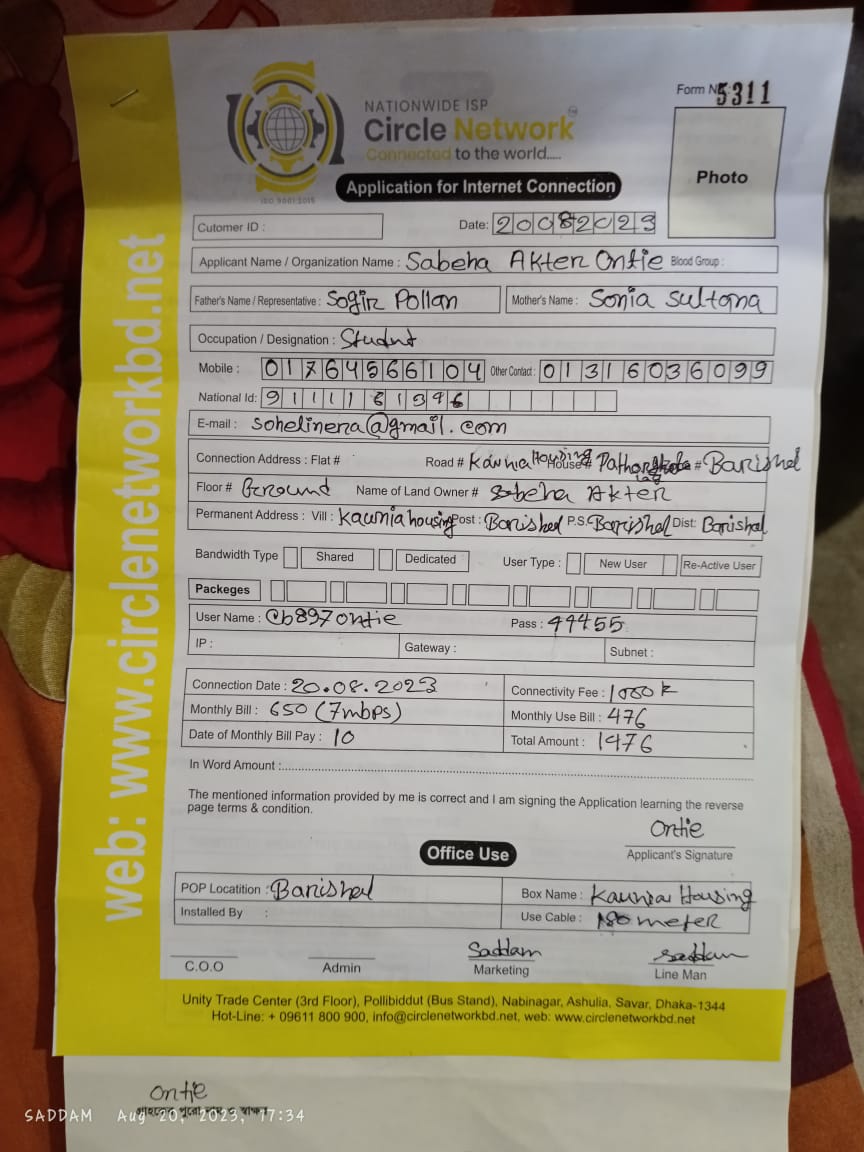 Form No 5311
NATIONWIDE ISP
Circle Network
Connected to the world.....
ISO 9001:2015
Application for Internet Connection
Photo
Cutomer ID :
Date: 20082023
Applicant Name / Organization Name : Sabeha Akter Ontie Blood Group :
Father's Name / Representative : Sogir Pollan Mother's Name : Sonia Sultana
Occupation / Designation : Studnt
Mobile : 01764566104 Other Contact : 01316036099
National Id: 9111161396
E-mail : sohelinena@gmail.com
Connection Address : Flat # Road # Kaunia Housing House # # Barishal
Floor # Ground Name of Land Owner # Sabeha Akter
Permanent Address : Vill : Kaunia housing Post : Barishal P.S. Barishal Dist: Barishal
Bandwidth Type Shared Dedicated User Type : New User Re-Active User
Packeges
User Name : cb897ontie Pass : 44455
IP : Gateway : Subnet :
Connection Date : 20.08.2023 Connectivity Fee : 1000 k
Monthly Bill : 650 (7mbps) Monthly Use Bill : 476
Date of Monthly Bill Pay : 10 Total Amount : 1476
In Word Amount :
The mentioned information provided by me is correct and I am signing the Application learning the reverse
page terms & condition.
Ontie
Applicant's Signature
Office Use
POP Locatition : Barishal Box Name : Kaunia Housing
Installed By : Use Cable : 180 meter
Saddam saddam
C.O.O Admin Marketing Line Man
Unity Trade Center (3rd Floor), Pollibiddut (Bus Stand), Nabinagar, Ashulia, Savar, Dhaka-1344
Hot-Line: + 09611 800 900, info@circlenetworkbd.net, web: www.circlenetworkbd.net
web: www.circlenetworkbd.net
ontie
SADDAM Aug 20, 2023, 17:34